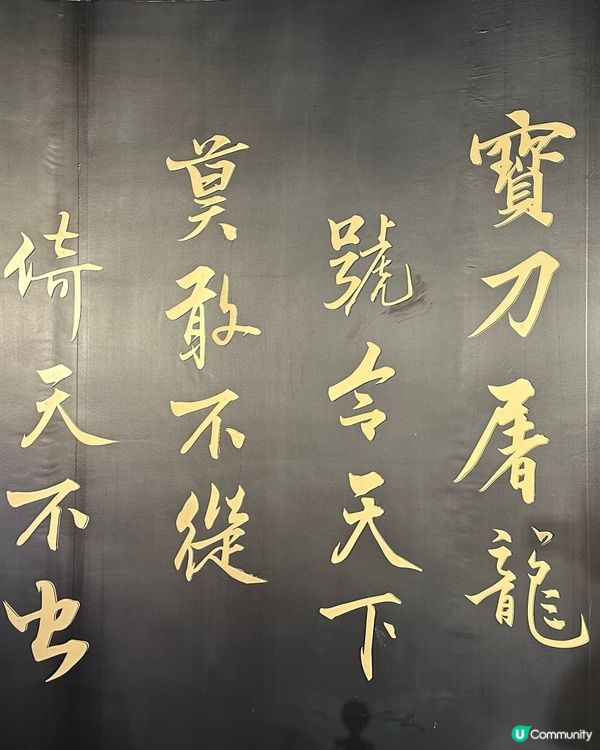 寶刀屠龍
號令天下
莫敢不從
倚天不出
U Community